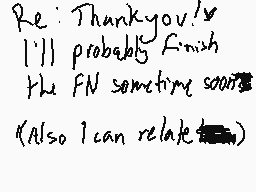 Re: Thankyou!♥
I'll probably finish
the FN sometime soon
(Also I can relate)